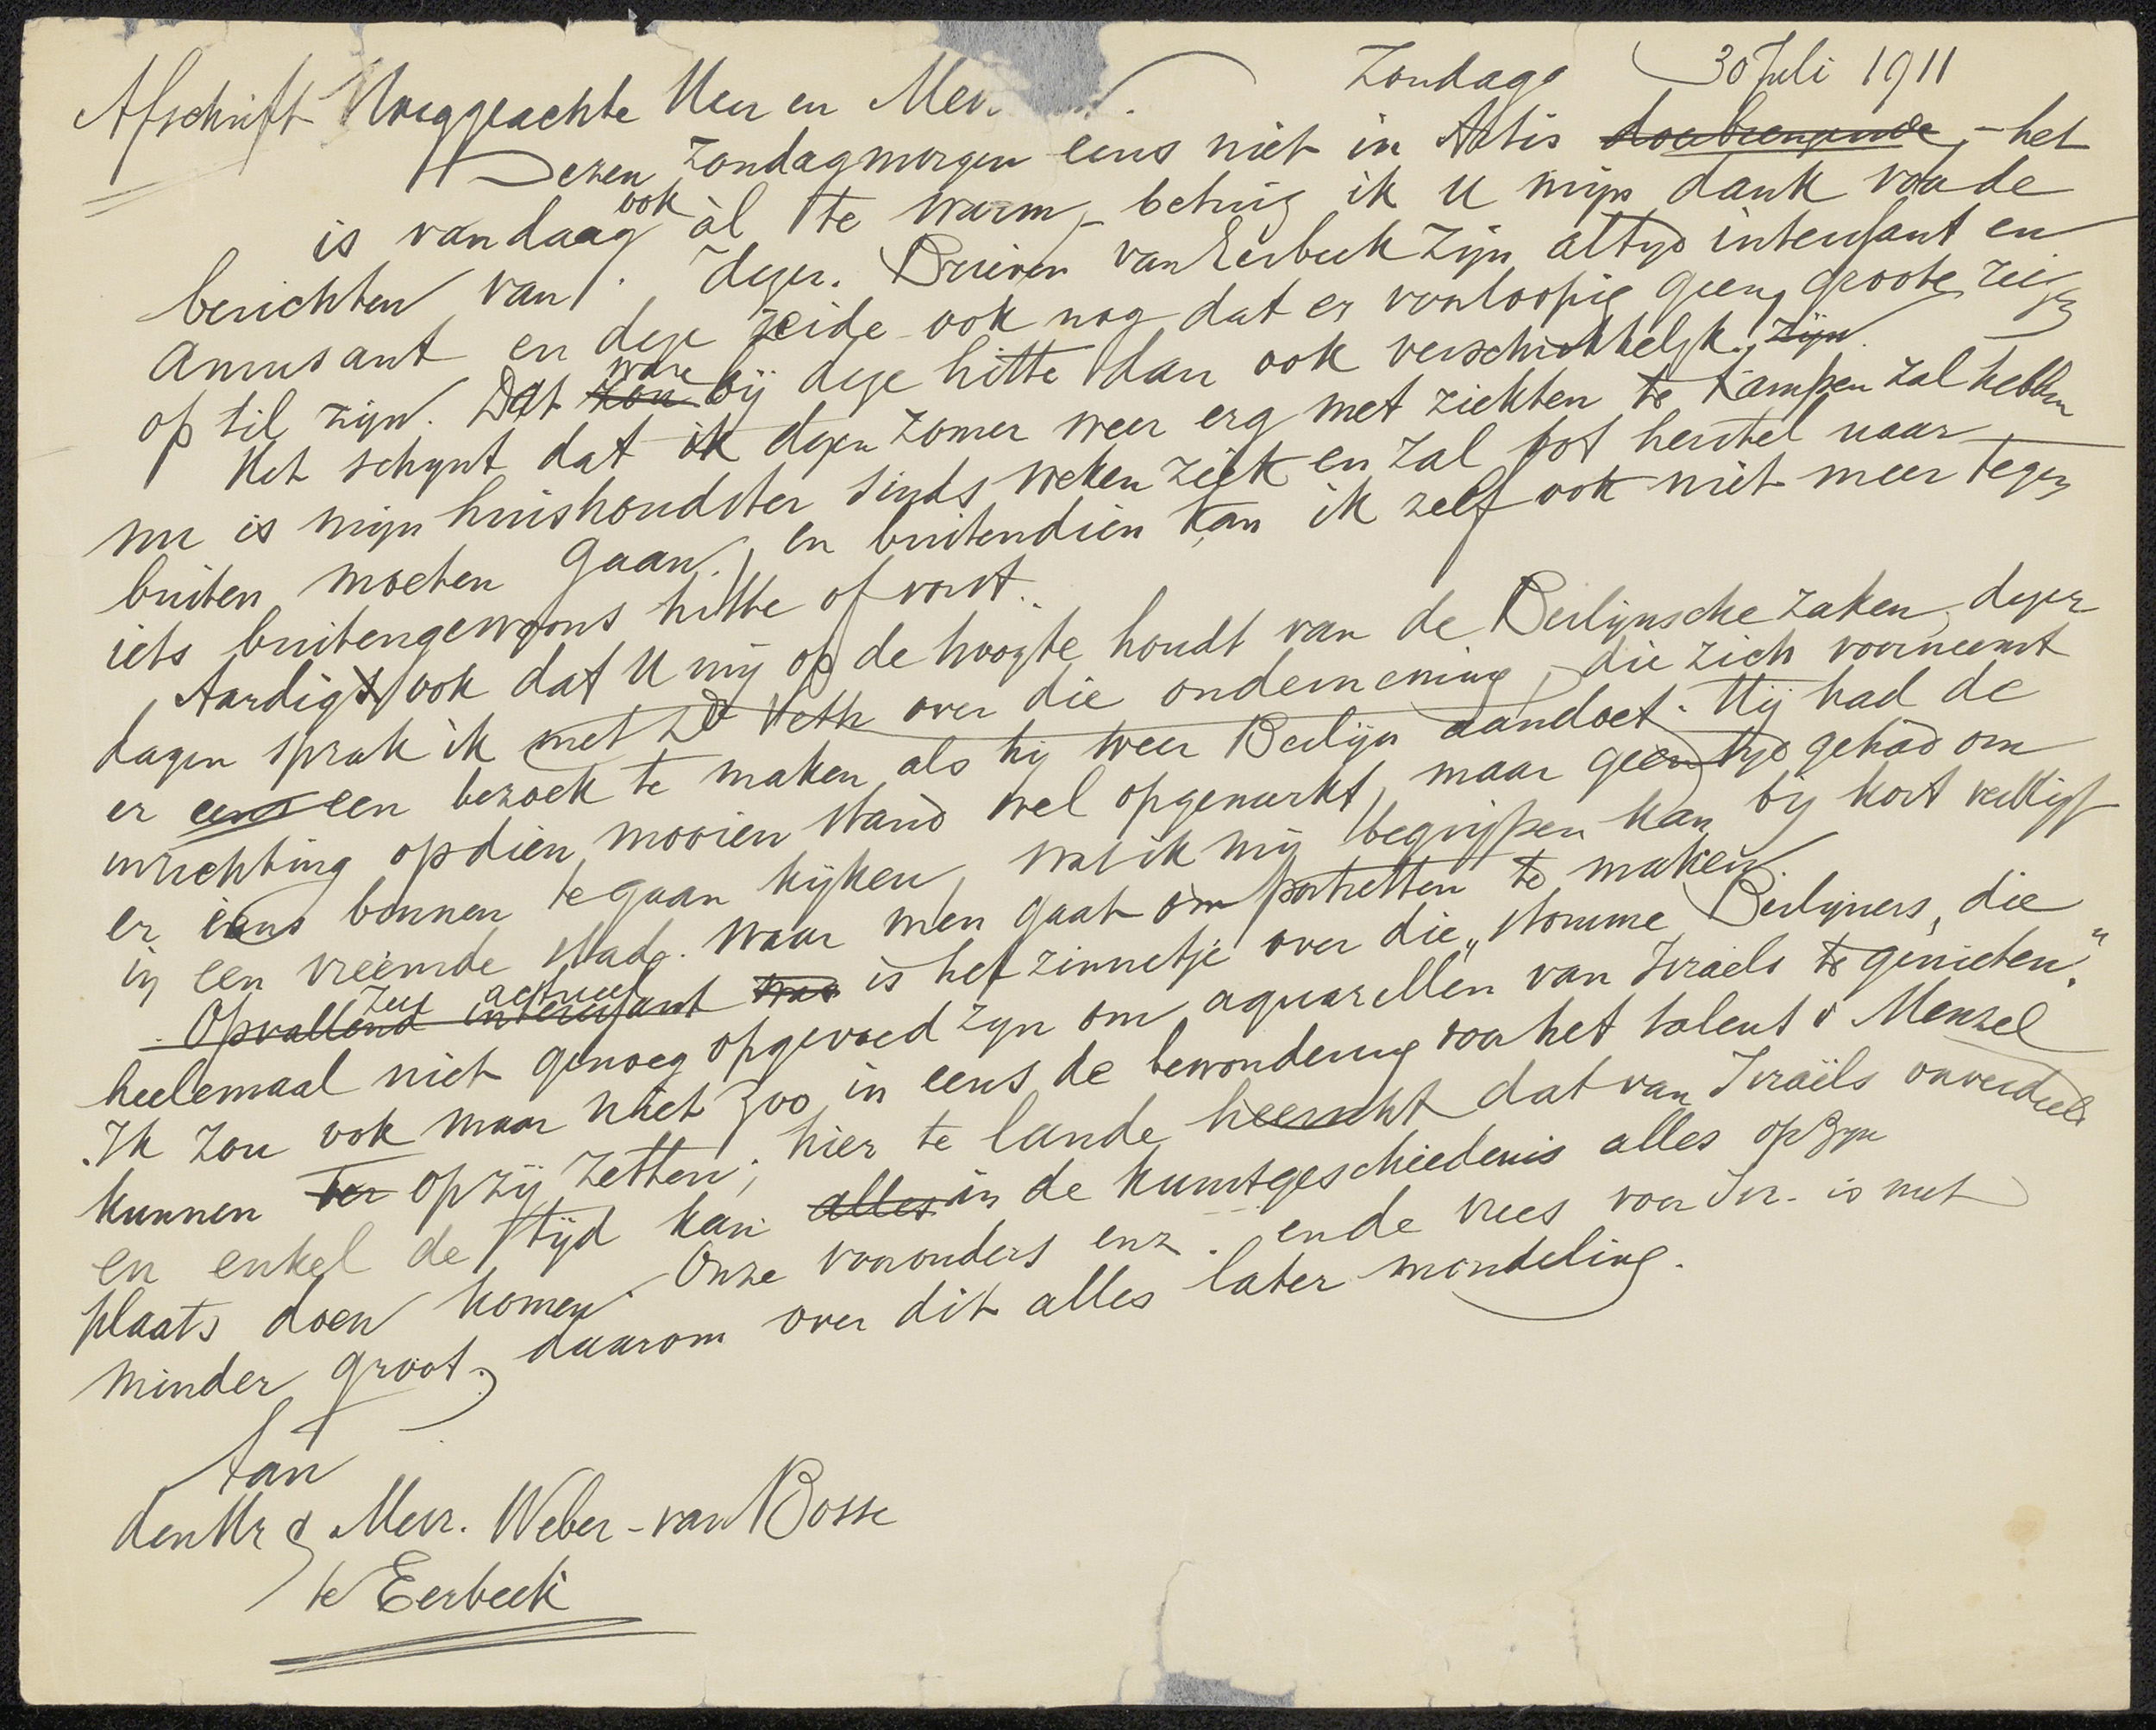 Zondag 30 Juli 1911
Afschrift Hooggeachte Heer en Mev.
Dezen zondagmorgen eens niet in Artis doorbrengende, – het
is vandaag ook àl te warm, – betuig ik U mijn dank voor de
berichten van dezer. Brieven van Eerbeek zijn altijd interessant en
amusant en deze zeide ook nog dat er voorloopig geen groote reizen
op til zijn. Dat zou ware bij deze hitte dan ook verschrikkelijk. zijn
Het schynt dat ik dezen zomer weer erg met ziekten te kampen zal hebben
nu is mijn huishoudster sinds weken ziek en zal tot herstel naar
buiten moeten gaan, en buitendien kan ik zelf ook niet meer tegen
iets buitengewoons hitte of vorst.
Aardig ook dat U mij op de hoogte houdt van de Berlijnsche zaken, dezer
dagen sprak ik met Dr Veth over die onderneming, die zich voorneemt
er eens een bezoek te maken als hij weer Berlijn aandoet. Hij had de
inrichting op dien mooien stand wel opgemerkt, maar geen tijd gehad om
er eens binnen te gaan kijken, wat ik mij begrijpen kan bij kort verblijf
in een vreemde stad. waar men gaat om portretten te maken
Opvallend interessant was zeer actueel is het zinnetje over die „stomme Berlijners, die
heelemaal niet genoeg opgevoed zijn om aquarellen van Israels te genieten."
Ik zou ook maar niet zoo in eens de bewondering voor het talent v Menzel
kunnen ter op zij zetten; hier te lande heerscht dat van Israëls onverdeeld
en enkel de tijd kan alles in de kunstgeschiedenis alles op zijn
plaats doen komen. Onze voorouders enz. en de vrees voor Isr. is niet
minder groot; daarom over dit alles later mondeling.
Aan
den Hr & Mevr. Weber – van Bosse
te Eerbeek